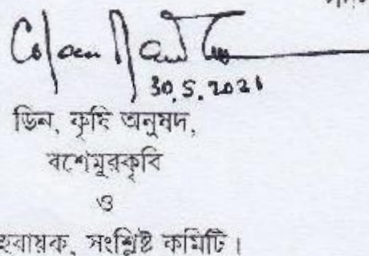 30.5.2021
ডিন, কৃষি অনুষদ,
বশেমুরকৃবি
ও
সংশ্লিষ্ট কমিটি।